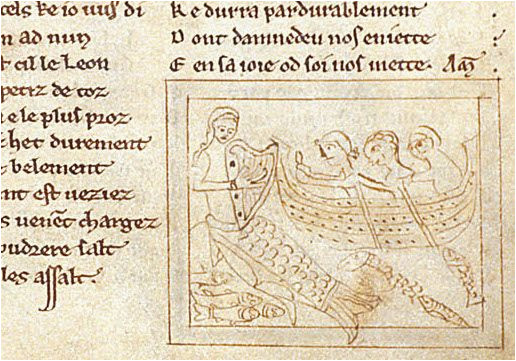 cels ke io vus di
n ad nun
t cil le Leon
petiz de toz
e le plus proz
chet durement
belement
ant est veziez
s venēt chargez
oudrere salt
les assalt.
Ke durra pardurablement
Dont damnedeu nos eniette
E en sa ioie od soi nos mette.